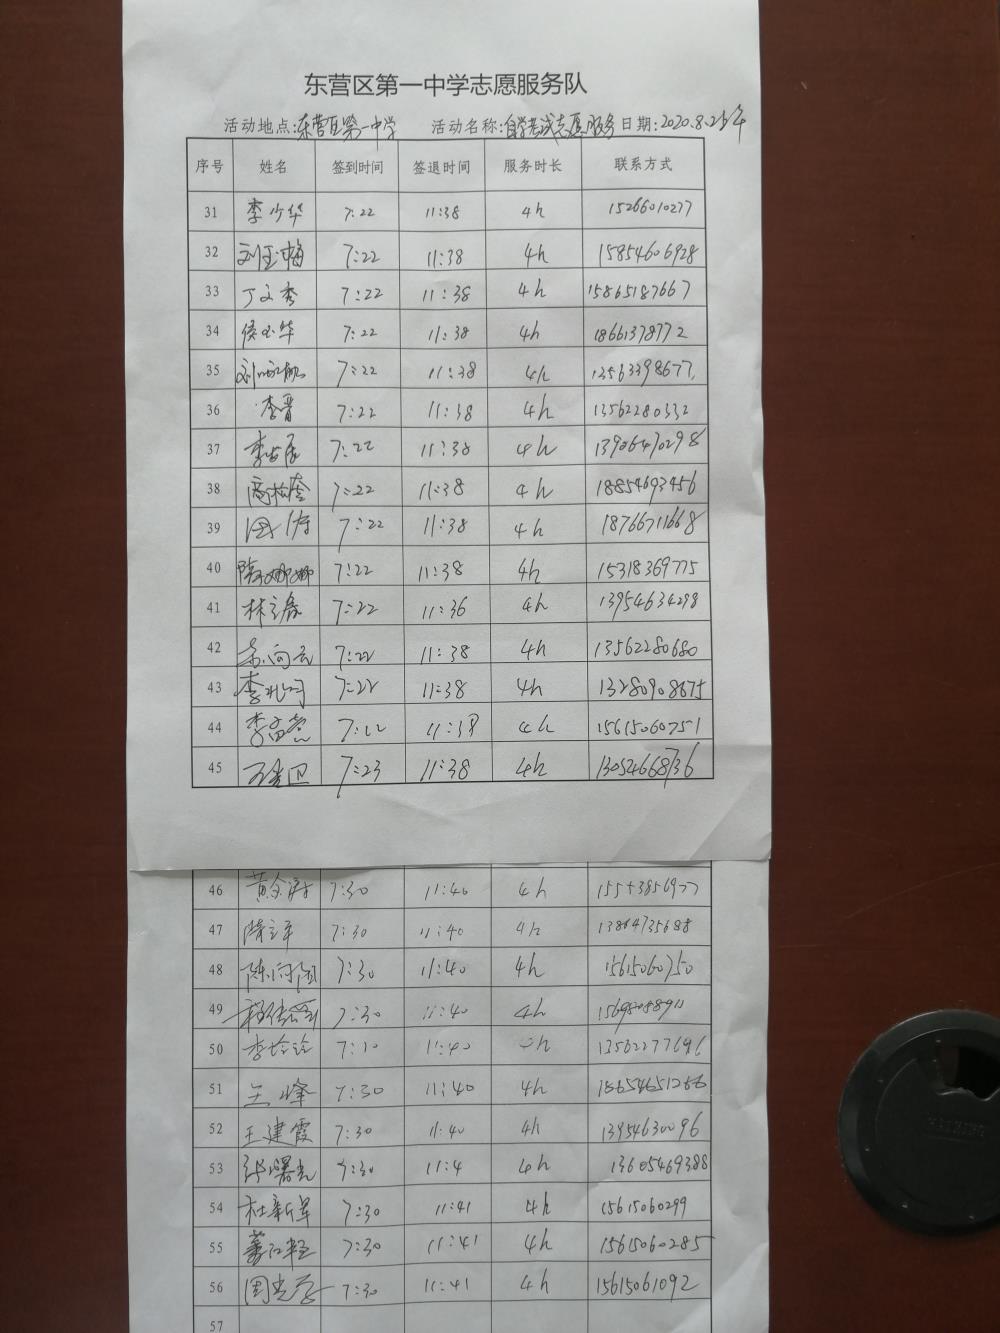 东营区第一中学志愿服务队
活动地点:东营区第一中学 活动名称:自学考试志愿服务 日期:2020.8.2 上午
序号 姓名 签到时间 签退时间 服务时长 联系方式
31 李少华 7:22 11:38 4h 15266010277
32 刘玉梅 7:22 11:38 4h 15854606928
33 丁文秀 7:22 11:38 4h 15865187667
34 侯玉华 7:22 11:38 4h 18661378772
35 7:22 11:38 4h 13563398677
36 李晋 7:22 11:38 4h 13562280332
37 7:22 11:38 4h 13906470298
38 高松奎 7:22 11:38 4h 18854693456
39 周涛 7:22 11:38 4h 18766711668
40 隋娜娜 7:22 11:38 4h 15318369775
41 林立春 7:22 11:36 4h 13954634298
42 7:22 11:38 4h 13562280680
43 7:22 11:38 4h 13280908675
44 7:22 11:38 4h 15615060751
45 7:23 11:38 4h 13054668736
46 7:30 11:40 4h
47 7:30 11:40 4h 13864735688
48 陈向阳 7:30 11:40 4h 15615060750
49 7:30 11:40 4h
50 李玲玲 7:10 11:40 13562277696
51 王峰 7:30 11:40 4h 18654651266
52 王建霞 7:30 11:40 4h 13954630096
53 张曙光 7:30 11:4 4h 13605469388
54 杜新军 7:30 11:41 4h 15615060299
55 7:30 11:41 4h 15615060285
56 7:30 11:41 4h 15615061092
57